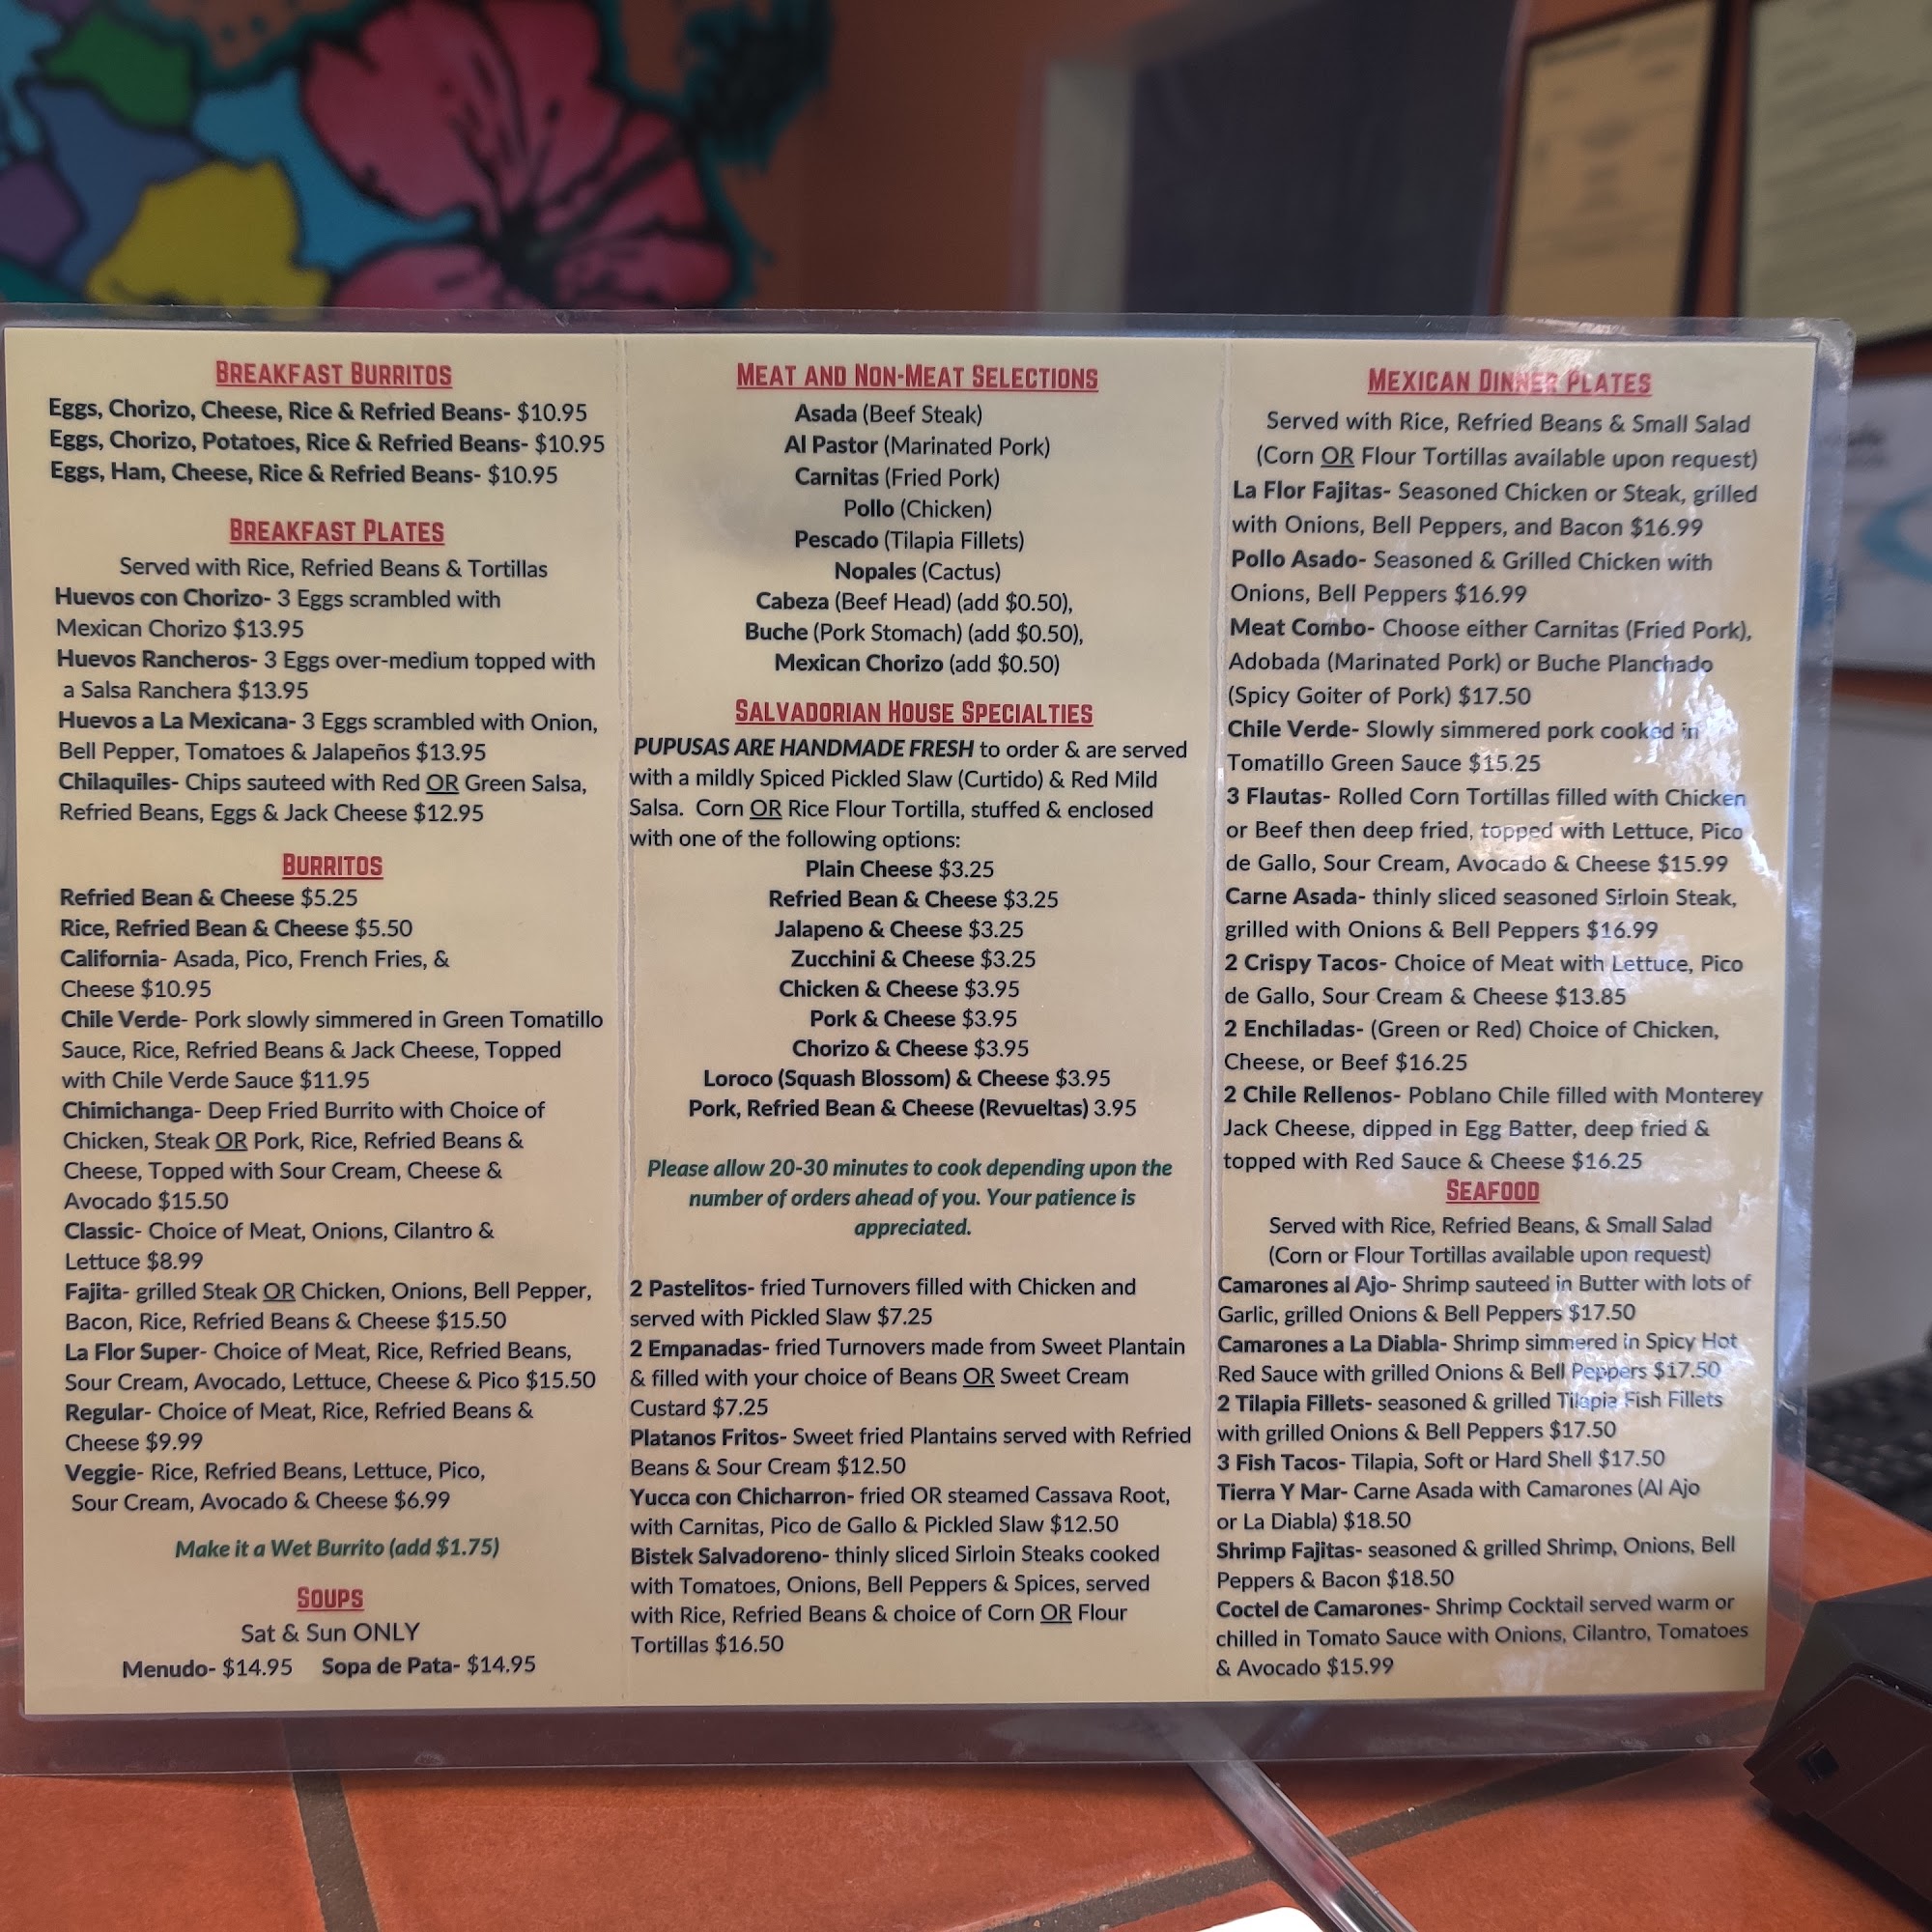 BREAKFAST BURRITOS
Eggs, Chorizo, Cheese, Rice & Refried Beans- $10.95
Eggs, Chorizo, Potatoes, Rice & Refried Beans- $10.95
Eggs, Ham, Cheese, Rice & Refried Beans- $10.95
BREAKFAST PLATES
Served with Rice, Refried Beans & Tortillas
Huevos con Chorizo- 3 Eggs scrambled with
Mexican Chorizo $13.95
Huevos Rancheros- 3 Eggs over-medium topped with
a Salsa Ranchera $13.95
Huevos a La Mexicana- 3 Eggs scrambled with Onion,
Bell Pepper, Tomatoes & Jalapeños $13.95
Chilaquiles- Chips sauteed with Red OR Green Salsa,
Refried Beans, Eggs & Jack Cheese $12.95
BURRITOS
Refried Bean & Cheese $5.25
Rice, Refried Bean & Cheese $5.50
California- Asada, Pico, French Fries, &
Cheese $10.95
Chile Verde- Pork slowly simmered in Green Tomatillo
Sauce, Rice, Refried Beans & Jack Cheese, Topped
with Chile Verde Sauce $11.95
Chimichanga- Deep Fried Burrito with Choice of
Chicken, Steak OR Pork, Rice, Refried Beans &
Cheese, Topped with Sour Cream, Cheese &
Avocado $15.50
Classic- Choice of Meat, Onions, Cilantro &
Lettuce $8.99
Fajita- grilled Steak OR Chicken, Onions, Bell Pepper,
Bacon, Rice, Refried Beans & Cheese $15.50
La Flor Super- Choice of Meat, Rice, Refried Beans,
Sour Cream, Avocado, Lettuce, Cheese & Pico $15.50
Regular- Choice of Meat, Rice, Refried Beans &
Cheese $9.99
Veggie- Rice, Refried Beans, Lettuce, Pico,
Sour Cream, Avocado & Cheese $6.99
Make it a Wet Burrito (add $1.75)
SOUPS
Sat & Sun ONLY
Menudo- $14.95 Sopa de Pata- $14.95
MEAT AND NON-MEAT SELECTIONS
Asada (Beef Steak)
Al Pastor (Marinated Pork)
Carnitas (Fried Pork)
Pollo (Chicken)
Pescado (Tilapia Fillets)
Nopales (Cactus)
Cabeza (Beef Head) (add $0.50),
Buche (Pork Stomach) (add $0.50),
Mexican Chorizo (add $0.50)
SALVADORIAN HOUSE SPECIALTIES
PUPUSAS ARE HANDMADE FRESH to order & are served
with a mildly Spiced Pickled Slaw (Curtido) & Red Mild
Salsa. Corn OR Rice Flour Tortilla, stuffed & enclosed
with one of the following options:
Plain Cheese $3.25
Refried Bean & Cheese $3.25
Jalapeno & Cheese $3.25
Zucchini & Cheese $3.25
Chicken & Cheese $3.95
Pork & Cheese $3.95
Chorizo & Cheese $3.95
Loroco (Squash Blossom) & Cheese $3.95
Pork, Refried Bean & Cheese (Revueltas) 3.95
Please allow 20-30 minutes to cook depending upon the
number of orders ahead of you. Your patience is
appreciated.
2 Pastelitos- fried Turnovers filled with Chicken and
served with Pickled Slaw $7.25
2 Empanadas- fried Turnovers made from Sweet Plantain
& filled with your choice of Beans OR Sweet Cream
Custard $7.25
Platanos Fritos- Sweet fried Plantains served with Refried
Beans & Sour Cream $12.50
Yucca con Chicharron- fried OR steamed Cassava Root,
with Carnitas, Pico de Gallo & Pickled Slaw $12.50
Bistek Salvadoreno- thinly sliced Sirloin Steaks cooked
with Tomatoes, Onions, Bell Peppers & Spices, served
with Rice, Refried Beans & choice of Corn OR Flour
Tortillas $16.50
MEXICAN DINNER PLATES
Served with Rice, Refried Beans & Small Salad
(Corn OR Flour Tortillas available upon request)
La Flor Fajitas- Seasoned Chicken or Steak, grilled
with Onions, Bell Peppers, and Bacon $16.99
Pollo Asado- Seasoned & Grilled Chicken with
Onions, Bell Peppers $16.99
Meat Combo- Choose either Carnitas (Fried Pork),
Adobada (Marinated Pork) or Buche Planchado
(Spicy Goiter of Pork) $17.50
Chile Verde- Slowly simmered pork cooked in
Tomatillo Green Sauce $15.25
3 Flautas- Rolled Corn Tortillas filled with Chicken
or Beef then deep fried, topped with Lettuce, Pico
de Gallo, Sour Cream, Avocado & Cheese $15.99
Carne Asada- thinly sliced seasoned Sirloin Steak,
grilled with Onions & Bell Peppers $16.99
2 Crispy Tacos- Choice of Meat with Lettuce, Pico
de Gallo, Sour Cream & Cheese $13.85
2 Enchiladas- (Green or Red) Choice of Chicken,
Cheese, or Beef $16.25
2 Chile Rellenos- Poblano Chile filled with Monterey
Jack Cheese, dipped in Egg Batter, deep fried &
topped with Red Sauce & Cheese $16.25
SEAFOOD
Served with Rice, Refried Beans, & Small Salad
(Corn or Flour Tortillas available upon request)
Camarones al Ajo- Shrimp sauteed in Butter with lots of
Garlic, grilled Onions & Bell Peppers $17.50
Camarones a La Diabla- Shrimp simmered in Spicy Hot
Red Sauce with grilled Onions & Bell Peppers $17.50
2 Tilapia Fillets- seasoned & grilled Tilapia Fish Fillets
with grilled Onions & Bell Peppers $17.50
3 Fish Tacos- Tilapia, Soft or Hard Shell $17.50
Tierra Y Mar- Carne Asada with Camarones (Al Ajo
or La Diabla) $18.50
Shrimp Fajitas- seasoned & grilled Shrimp, Onions, Bell
Peppers & Bacon $18.50
Coctel de Camarones- Shrimp Cocktail served warm or
chilled in Tomato Sauce with Onions, Cilantro, Tomatoes
& Avocado $15.99